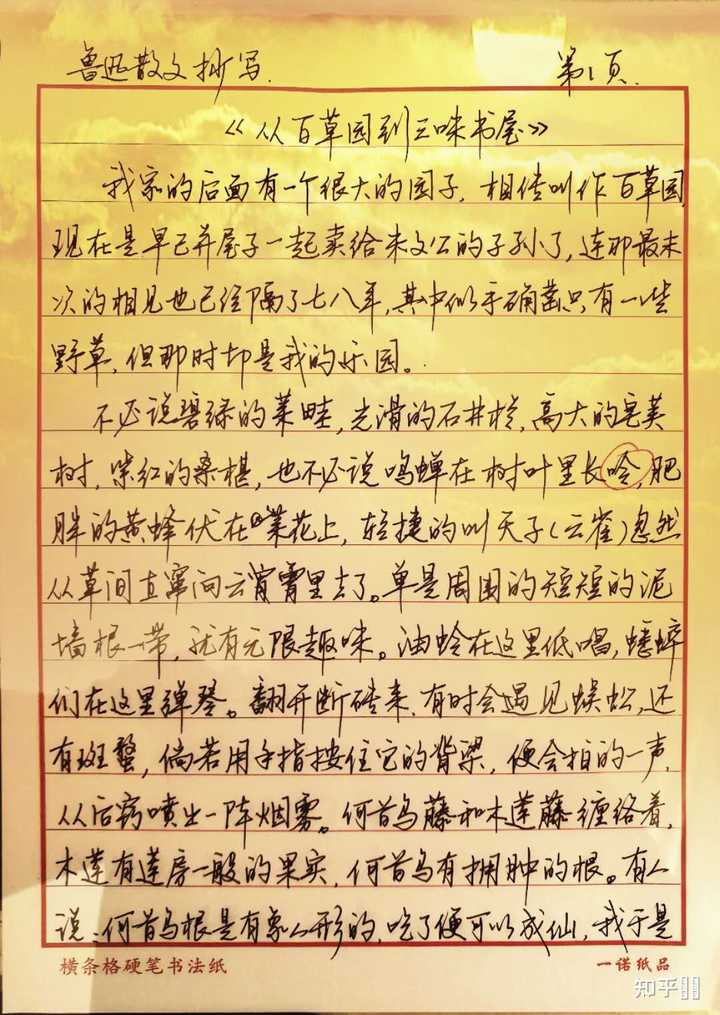 鲁迅散文抄写. 第1页.
《从百草园到三味书屋》
我家的后面有一个很大的园子，相传叫作百草园
现在是早已并屋子一起卖给朱文公的子孙了，连那最末
次的相见也已经隔了七八年，其中似乎确凿只有一些
野草，但那时却是我的乐园。
不必说碧绿的菜畦，光滑的石井栏，高大的皂荚
树，紫红的桑椹，也不必说鸣蝉在树叶里长吟，肥
胖的黄蜂伏在菜花上，轻捷的叫天子（云雀）忽然
从草间直窜向云霄里去了。单是周围的短短的泥
墙根一带，就有无限趣味。油蛉在这里低唱，蟋蟀
们在这里弹琴。翻开断砖来，有时会遇见蜈蚣，还
有斑蝥，倘若用手指按住它的背梁，便会拍的一声，
从后窍喷出一阵烟雾。何首乌藤和木莲藤缠络着，
木莲有莲房一般的果实，何首乌有拥肿的根。有人
说：何首乌根是有象人形的，吃了便可以成仙，我于是
横条格硬笔书法纸 一诺纸品
知乎